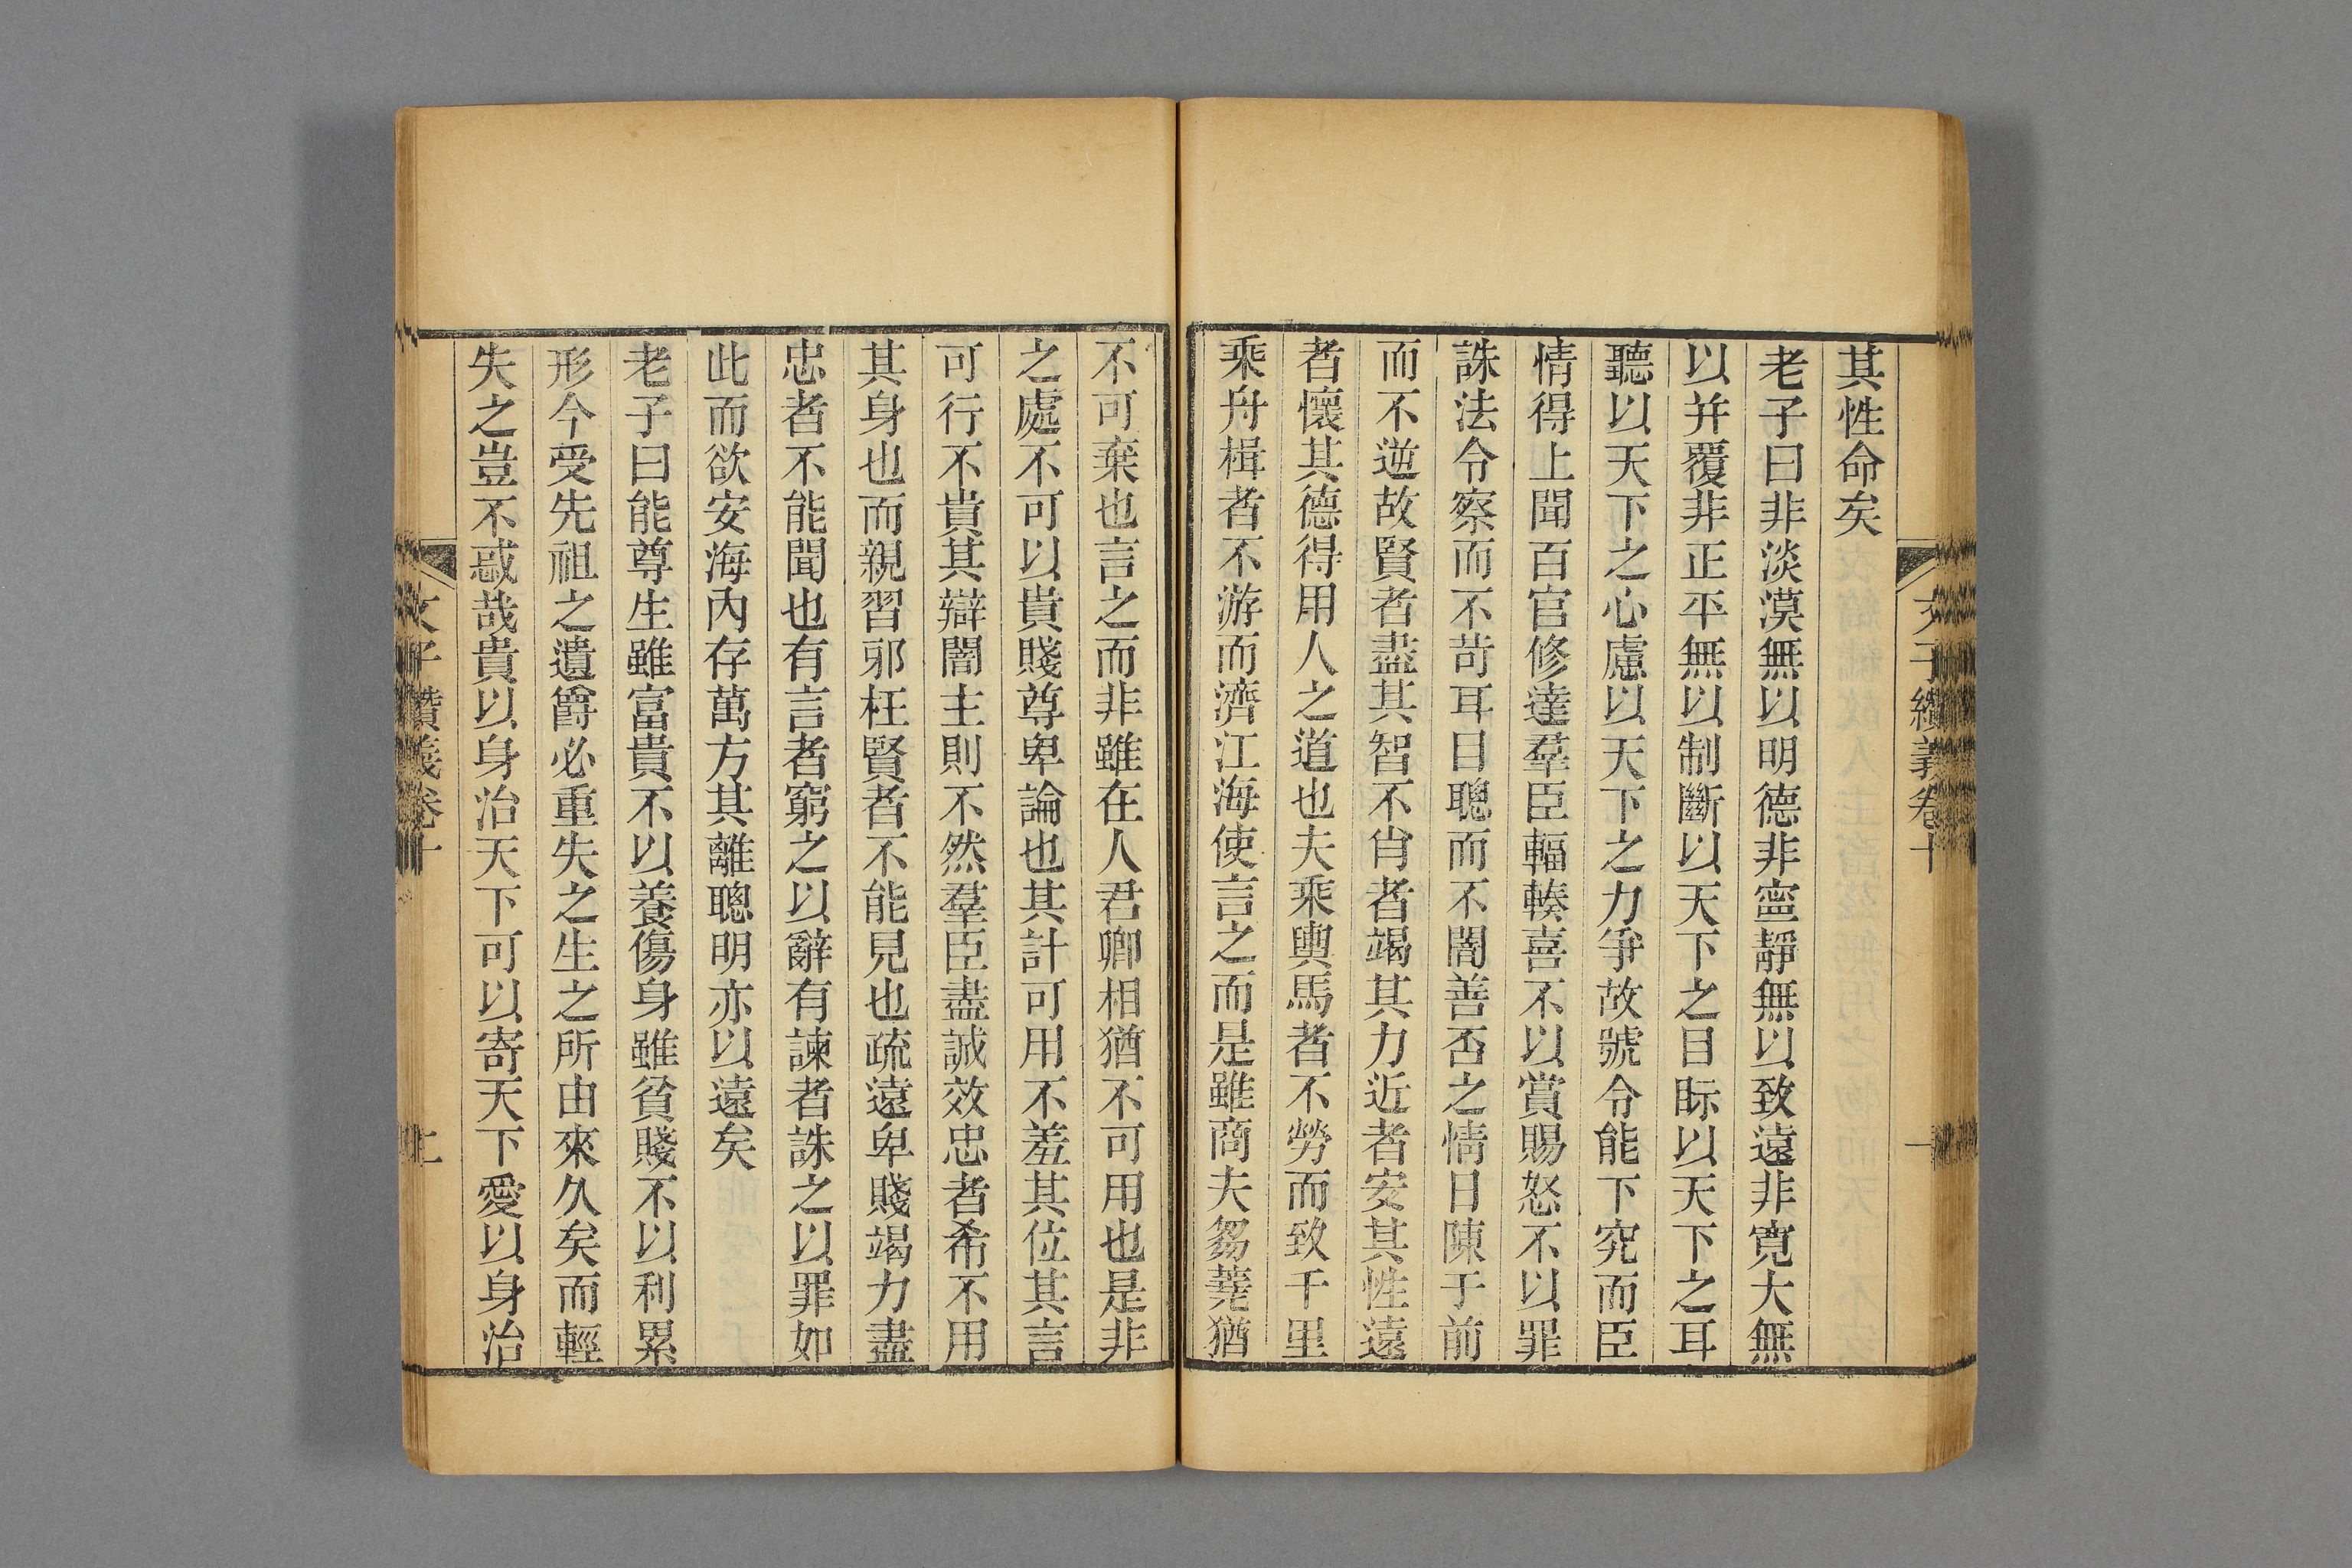 文子纘義卷十
其性命矣
老子曰非淡漠無以明德非寧靜無以致遠非寬大無
以并覆非正平無以制斷以天下之目眎以天下之耳
聽以天下之心慮以天下之力爭故號令能下究而臣
情得上聞百官修達羣臣輻輳喜不以賞賜怒不以罪
誅法令察而不苛耳目聰而不闇善否之情日陳于前
而不逆故賢者盡其智不肖者竭其力近者安其性遠
者懷其德得用人之道也夫乘輿馬者不勞而致千里
乘舟楫者不游而濟江海使言之而是雖商夫芻蕘猶
不可棄也言之而非雖在人君卿相猶不可用也是非
之處不可以貴賤尊卑論也其計可用不羞其位其言
可行不貴其辯闇主則不然羣臣盡誠效忠者希不用
其身也而親習邪枉賢者不能見也疏遠卑賤竭力盡
忠者不能聞也有言者窮之以辭有諫者誅之以罪如
此而欲安海內存萬方其離聰明亦以遠矣
老子曰能尊生雖富貴不以養傷身雖貧賤不以利累
形今受先祖之遺爵必重失之生之所由來久矣而輕
失之豈不惑哉貴以身治天下可以寄天下愛以身治
文子纘義卷十